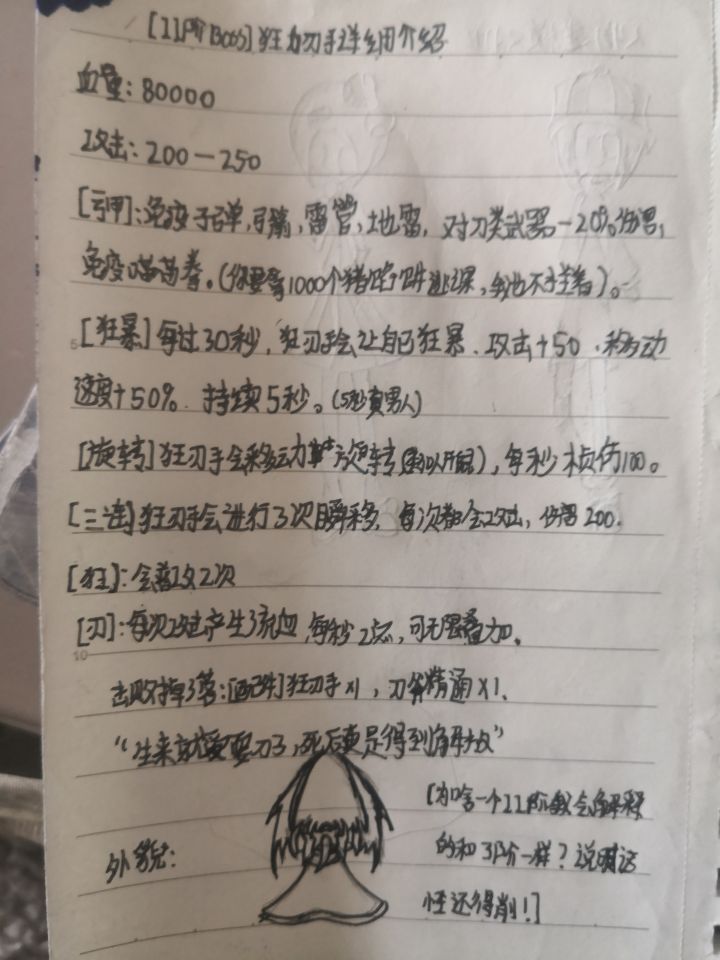 [11阶Boss]狂力刃手详细介绍
血量：80000
攻击：200—250
[亏甲]：免疫子弹，弓箭，雷管，土地雷，对刀类武器-20%伤害，
免疫喵苗拳。(1000个猪，我也不拦着)。
[狂暴]每过30秒，狂刃手会让自己狂暴，攻击+50，移动
速度+50%，持续5秒。(5秒真男人)
[旋转]狂刃手会移动旋转，每秒损伤100。
[三连]狂刃手会进行3次瞬移，每次都会攻击，伤害200。
[狂]：会普攻2次
[刃]：每次攻击产生3流血，每秒2点，可无限叠加。
击败掉落：[配件]狂刃手×1，刃斧精通×1.
“生来就爱耍刀了，死后更是得到解放”
外貌：
[为啥一个11阶我会解释
的和3阶一样？说明这
怪还得削！]